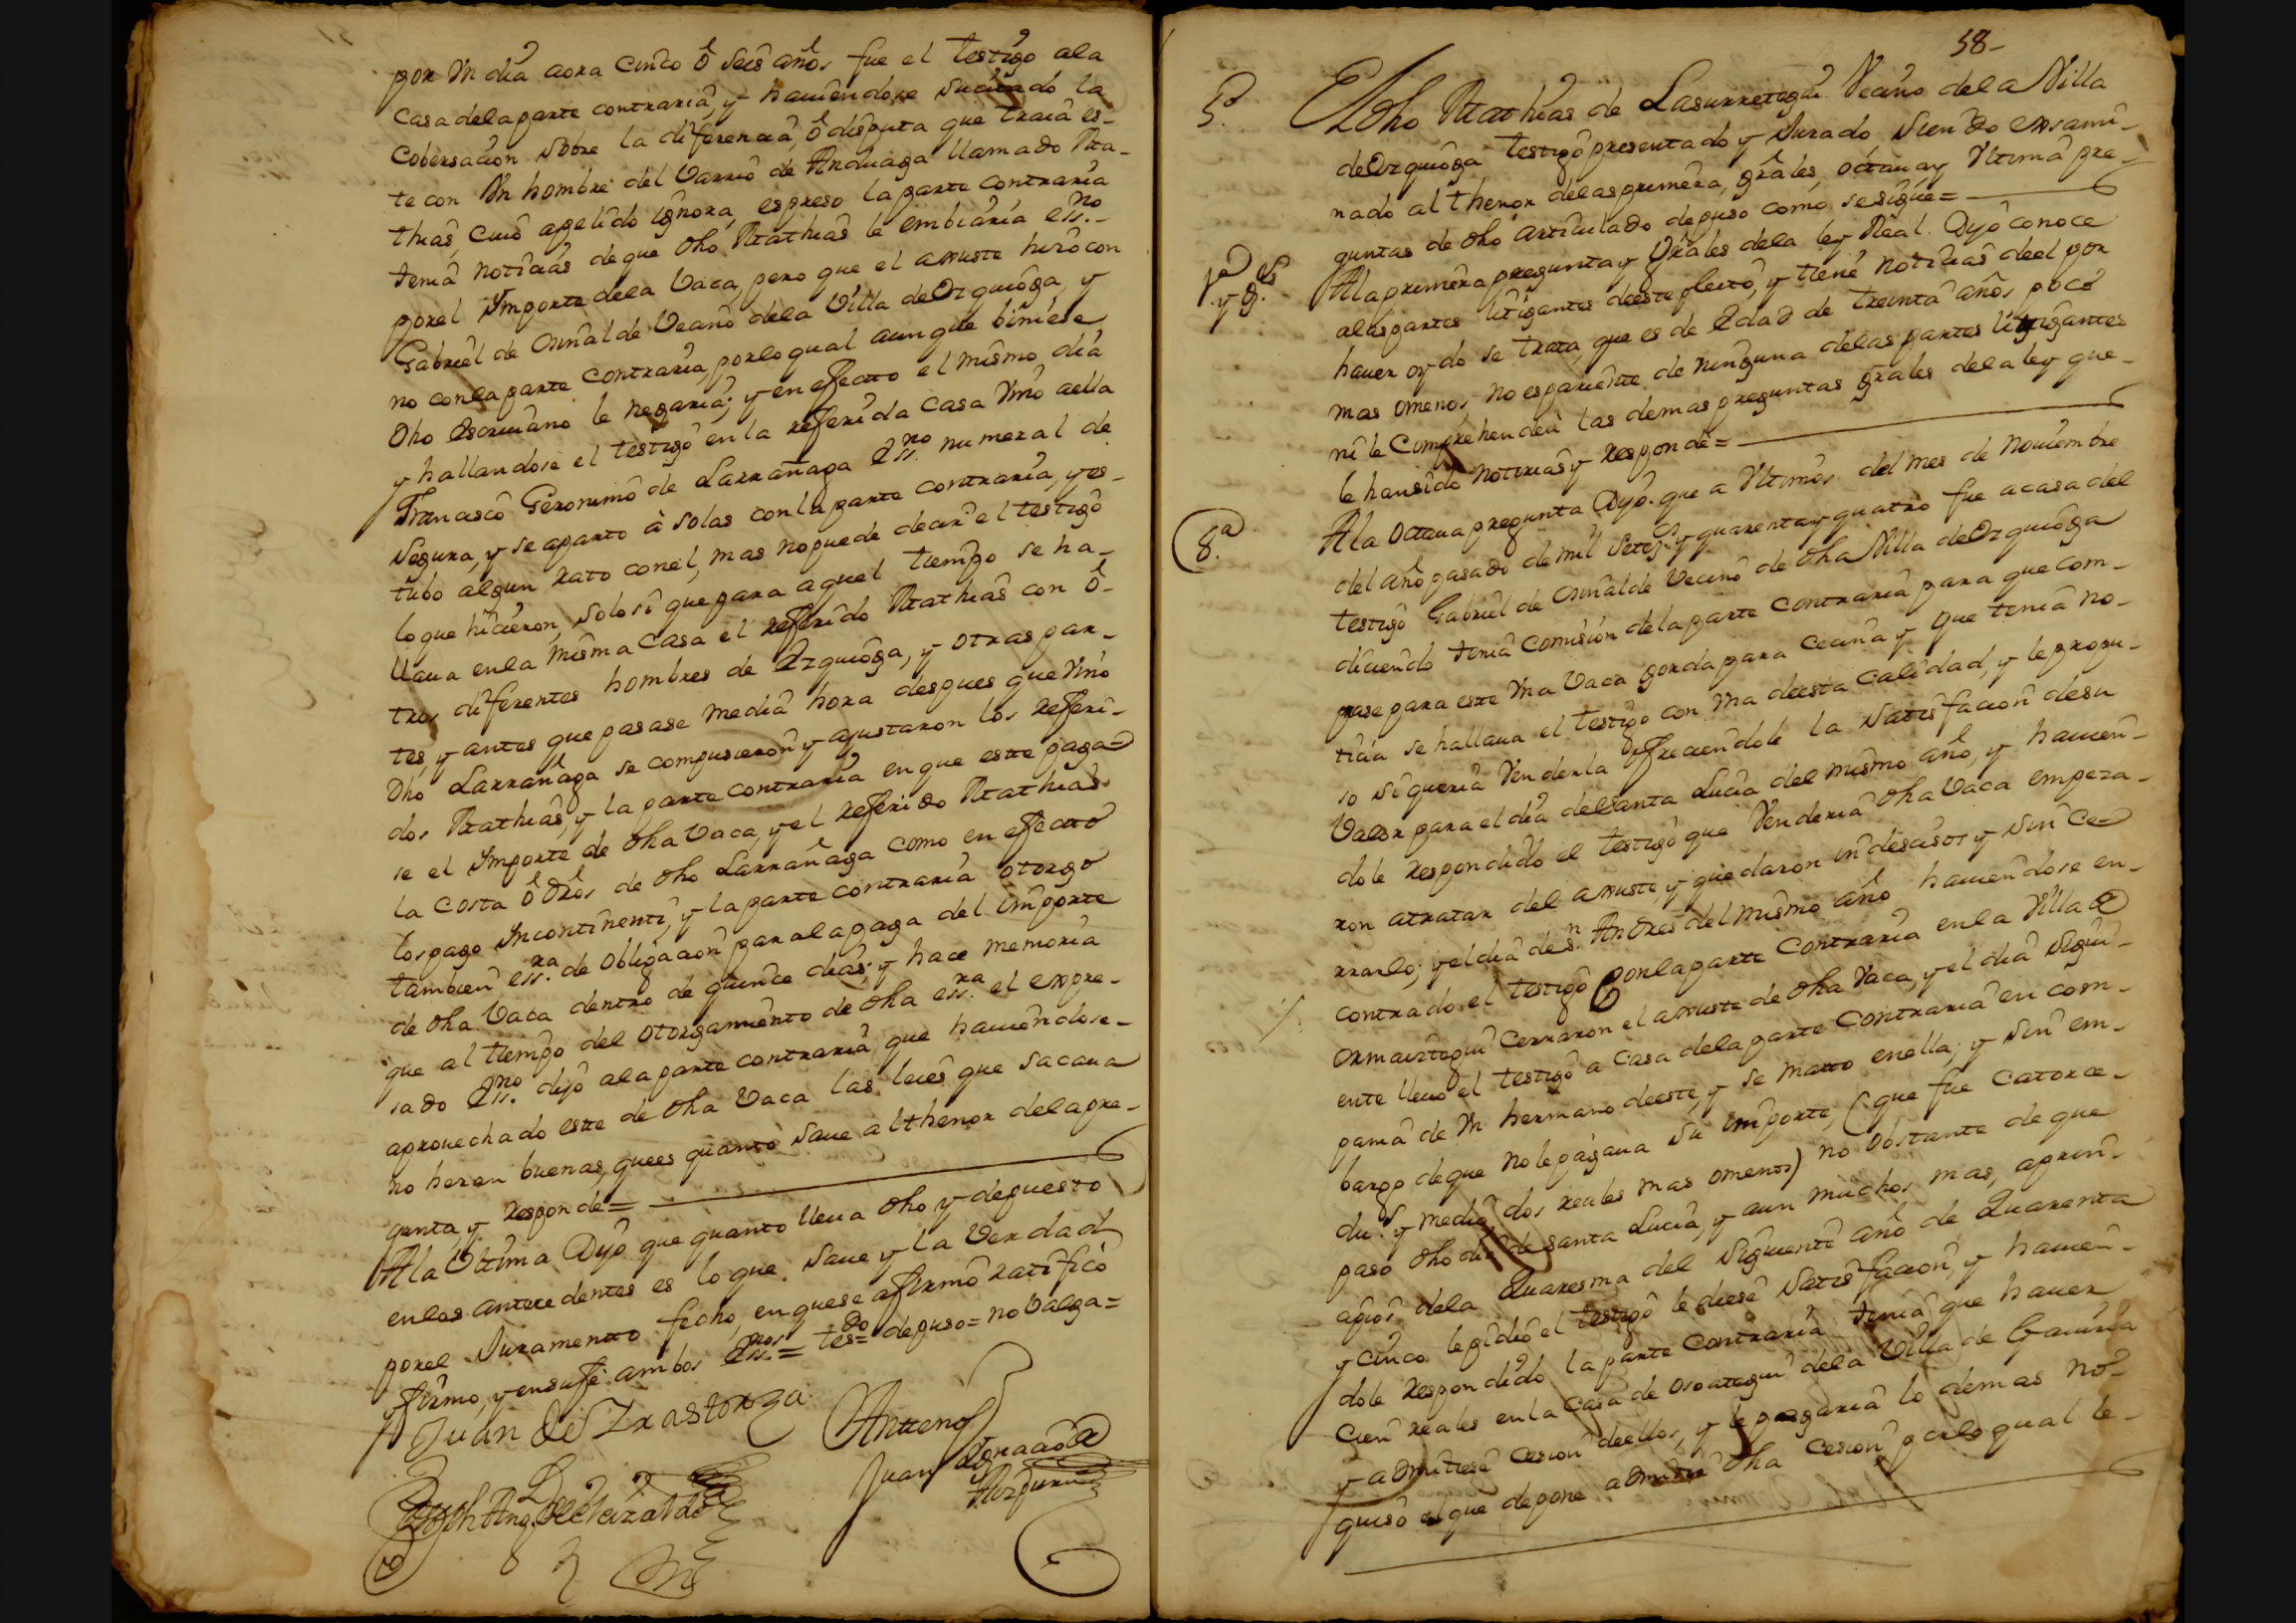 por Vn dia aora cinco ô seis años fue el testigo ala
casa dela parte contraria, y hauiendose sucitado la
cobersacion sobre la diferencia, ô disputa que traia es-
te con Vn hombre del Varrio de Anduaga llamado Ma-
thias, cuio apelido ignora, espreso la parte contraria
tenia noticias de que dho Mathias le embiaria essno
por el Ymporte dela Vaca, pero que el ajuste hizo con
Gabriel de Osinalde Vecino dela Villa de Ezquioga, y
no con la parte contraria, por lo qual aunque biniese
dho Escriuano le negaria; y en efecto el mismo dia
y hallandose el testigo en la referida casa Vino aella
Francisco Geronimo de Larrañaga Essno numeral de
Segura, y se aparto à solas con la parte contraria, y es-
tubo algun rato con el, mas no puede decir el testigo
lo que hicieron, solo si que para aquel tiempo se ha-
llaua en la misma casa el referido Mathias con ô-
tros diferentes hombres de Ezquioga, y otras par-
tes, y antes que pasase media hora despues que Vino
dho Larrañaga se compusieron y ajustaron los referi-
dos Mathias, y la parte contraria en que este paga=
se el Ymporte de dha Vaca, y el referido Mathias
la costa ô dros de dho Larrañaga como en efecto
los pago Incontinenti, y la parte contraria otorgo
tambien essra de obligacion para la paga del importe
de dha Vaca dentro de quince dias; y hace memoria
que al tiempo del otorgamiento de dha essra el expre-
sado Essno dijo ala parte contraria que hauiendose-
aprouechado este de dha Vaca las leies que sacaua
no heran buenas, que es quanto saue al thenor dela pre-
gunta, y responde=
Ala Vltima Dijo que quanto lleua dho y depuesto
en los antecedentes es lo que saue y la Verdad
por el Juramento fecho, en que se afirmô ratificò
y firmo, y en su fe ambos Essnos = tesdo= depuso= no balga=
Juan de Irastorza
Antenos
Juan Ignacio de
Joseph Ang. de Elizalde
58-
5º.
El dho Mathias de Lasurretegui Vecino dela Villa
de Ezquioga testigo presentado y Jurado siendo exsami-
nado al thenor delas primera, grales, octaua y Vltima pre-
guntas de dho articulado depuso como se sigue=
1ª
y gs.
Ala primera pregunta y Grales dela ley Real Dijo conoce
alas partes litigantes de este pleito, y tiene noticias de el por
hauer oydo se trata, que es de Edad de treinta años poco
mas omenos, no es pariente de ninguna delas partes litigantes
ni le Comprehenden las demas preguntas grales dela ley que-
le han sido notorias y responde=
8.ª
Ala Octaua pregunta Dijo que a Vltimos del mes de Nouiembre
del año pasado de mil Setezs y quarenta y quatro fue a casa del
testigo Gabriel de Osinalde Vecino de dha Villa de Ezquioga
diciendo tenia comision dela parte contraria para que com-
prase para este Vna Vaca gorda para cecina y que tenia no-
ticia se hallaua el testigo con Vna de esta calidad, y le propu-
so si queria Venderla ofreciendole la satisfacion de su
Valor para el dia de Santa Lucia del mismo año, y hauien-
dole respondido el testigo que Venderia dha Vaca empeza-
ron atratar del ajuste, y quedaron indecisos y sin ce=
rrarlo; y el dia de Sn Andres del mismo año hauiendose en-
contrado el testigo con la parte contraria en la Villa de
Ormaiztegui Cerraron el ajuste de dha Vaca, y el dia sigui-
ente lleuo el testigo a casa dela parte contraria en com-
pania de Vn hermano de este, y se mato en ella; y sin em-
bargo de que no le pagaua su importe, (que fue catorce
dus. y medio dos reales mas omenos) no obstante de que
paso dho dia de santa Lucia, y aun muchos mas, a prin-
cipios dela Quaresma del siguiente año de Quarenta
y cinco le pidio el testigo le diese satisfacion, y hauien-
dole respondido la parte contraria tenia que hauer
cien reales en la casa de Osoategui dela Villa de Gauiria
y admitiese cesion de ellos, y le pagaria lo demas no
quiso el que depone admitir dha cesion por lo qual le-